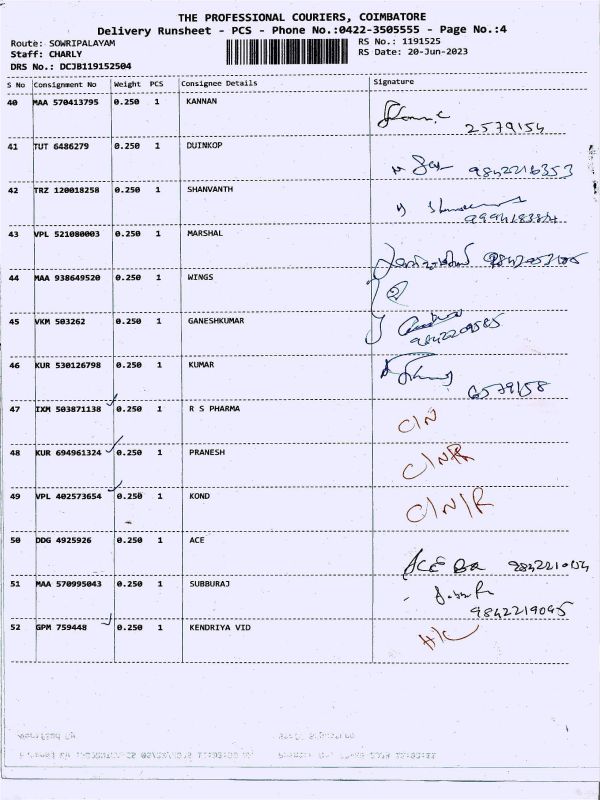 THE PROFESSIONAL COURIERS, COIMBATORE
Delivery Runsheet - PCS - Phone No.:0422-3505555 - Page No.:4
Route: SOWRIPALAYAM RS No.: 1191525
Staff: CHARLY RS Date: 20-Jun-2023
DRS No.: DCJB119152504
S No Consignment No Weight PCS Consignee Details Signature
40 MAA 570413795 0.250 1 KANNAN
2579154
41 TUT 6486279 0.250 1 DUINKOP
9842216353
42 TRZ 120018258 0.250 1 SHANVANTH
43 VPL 521080003 0.250 1 MARSHAL
44 MAA 938649520 0.250 1 WINGS
45 VKM 503262 0.250 1 GANESHKUMAR
9842209585
46 KUR 530126798 0.250 1 KUMAR
6579158
47 IXM 503871138 0.250 1 R S PHARMA C/N
48 KUR 694961324 0.250 1 PRANESH C/N/R
49 VPL 402573654 0.250 1 KOND C/N/R
50 DDG 4925926 0.250 1 ACE
ACE
51 MAA 570995043 0.250 1 SUBBURAJ
9842219095
52 GPM 759448 0.250 1 KENDRIYA VID H/C